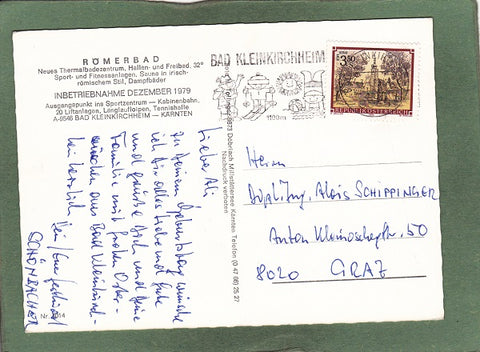 RÖMERBAD
Neues Thermalbadezentrum, Hallen- und Freibad, 32°
Sport- und Fitnessanlagen, Sauna in irisch-
römischem Stil, Dampfbäder
INBETRIEBNAHME DEZEMBER 1979
Ausgangspunkt ins Sportzentrum — Kabinenbahn,
20 Liftanlagen, Langlaufloipen, Tennishalle
A-9546 BAD KLEINKIRCHHEIM — KÄRNTEN
BAD KLEINKIRCHHEIM
1100m
3.50
REPUBLIK ÖSTERREICH
9873 Döbriach Millstättersee Kärnten Telefon (0 47 06) 25 27
Nachdruck verboten
Lieber Ali
zu Deinem Geburtstag wünsche
ich Dir alles Liebe und Gute
und grüße Dich und Deine
Familie mit frohen Oster-
wünschen aus Bad Kleinkirch-
heim herzlich
SCHÖNBACHER
Herrn
Dipl. Ing. Alois SCHIPPINGER
Anton Kleinoschegstr. 50
8020 GRAZ